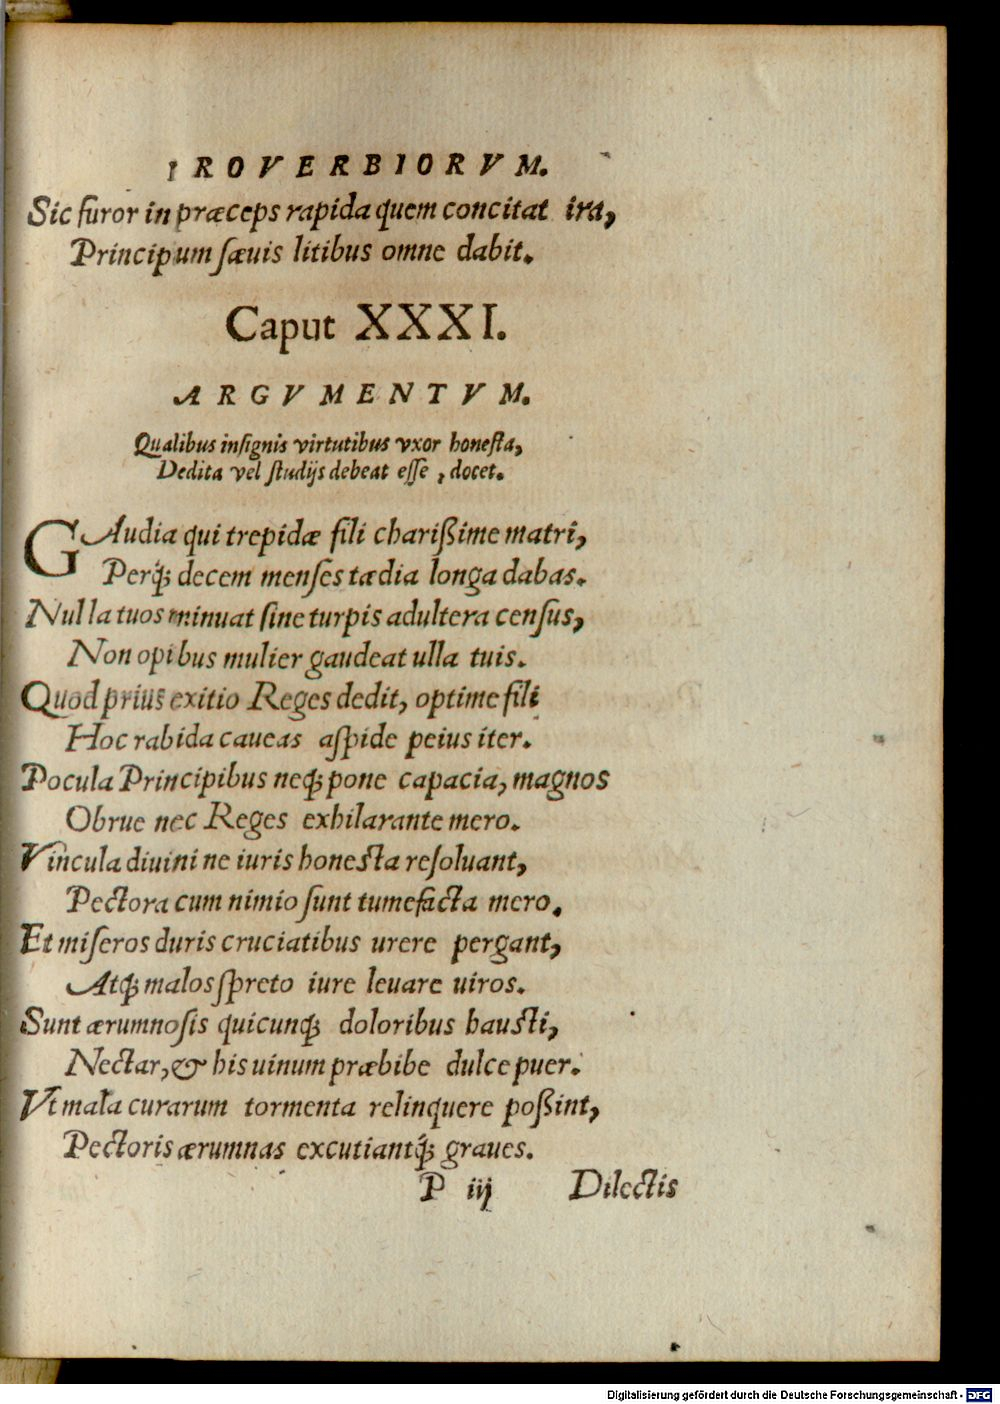 PROVERBIORVM.
Sic furor in præceps rapida quem concitat ira,
Principum sæuis litibus omne dabit.
Caput XXXI.
ARGVMENTVM.
Qualibus insignis virtutibus vxor honesta,
Dedita vel studijs debeat esse, docet.
GAudia qui trepidæ fili charißime matri,
Perq́; decem menses tædia longa dabas.
Nulla tuos minuat sine turpis adultera census,
Non opibus mulier gaudeat ulla tuis.
Quod prius exitio Reges dedit, optime fili
Hoc rabida caueas aspide peius iter.
Pocula Principibus neq; pone capacia, magnos
Obrue nec Reges exhilarante mero.
Vincula diuini ne iuris honesta resoluant,
Pectora cum nimio sunt tumefacta mero.
Et miseros duris cruciatibus urere pergant,
Atq; malos spreto iure leuare uiros.
Sunt ærumnosis quicunq; doloribus hausti,
Nectar, & his uinum præbibe dulce puer.
Vt mala curarum tormenta relinquere poßint,
Pectoris ærumnas excutiantq́; graues.
P iij Dilectis
Digitalisierung gefördert durch die Deutsche Forschungsgemeinschaft - DFG